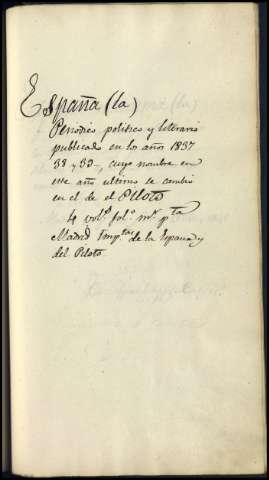 España (la)
Periodico politico y literario
publicado en los años 1837
38 y 39-, cuyo nombre en
este año ultimo se cambio
en el de el Piloto
4 vol.s fol.o m.r p.ta
Madrid Imp.tas de la España y
del Piloto